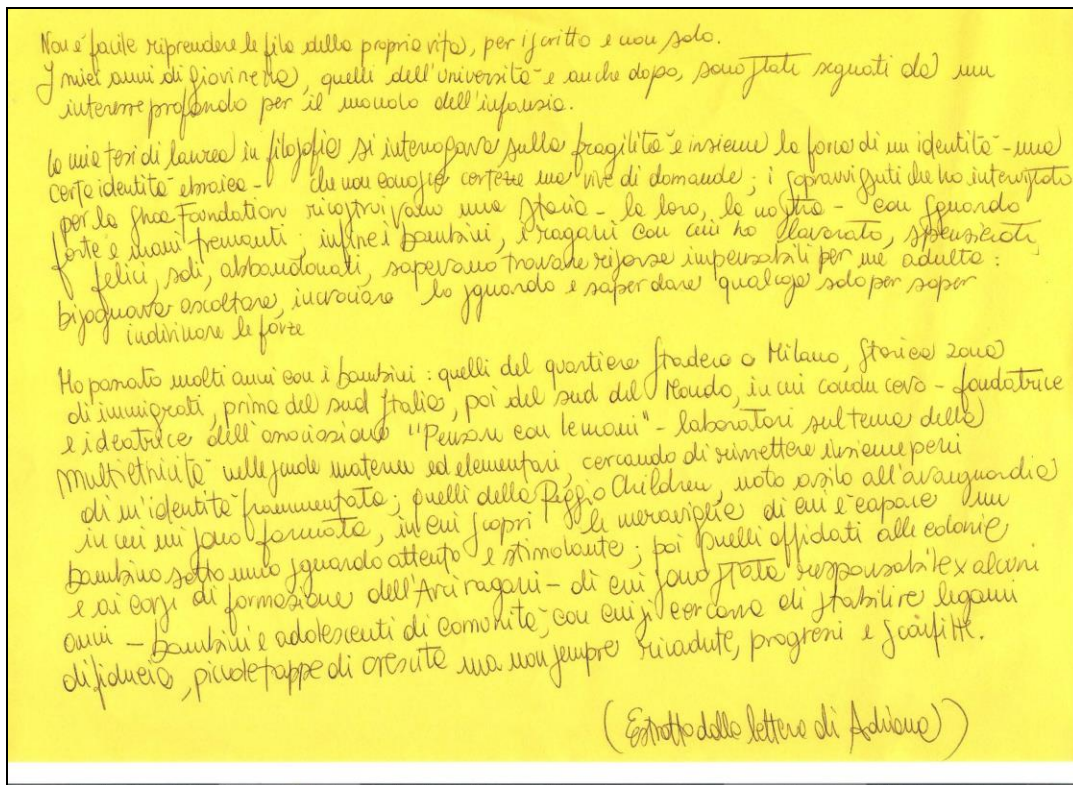 Non è facile riprendere le fila della propria vita, per iscritto e non solo.
I miei anni di giovinezza, quelli dell'università e anche dopo, sono stati segnati da un
interesse profondo per il mondo dell'infanzia.
La mia tesi di laurea in filosofia si interrogava sulla fragilità e insieme la forza di un identità - una
certa identità ebraica - che non conosce certezze ma vive di domande; i sopravvissuti che ho intervistato
per la Shoa Foundation ricostruivano una storia - la loro, la nostra - con sguardo
forte e mani tremanti; infine i bambini, i ragazzi con cui ho lavorato, spensierati,
felici, soli, abbandonati, sapevano trovare risorse impensabili per me adulta:
bisognava ascoltare, incrociare lo sguardo e saper dare qualcosa solo per saper
indirizzare le forze
Ho passato molti anni con i bambini: quelli del quartiere Stadera a Milano, storica zona
di immigrati, prima del sud Italia, poi del sud del Mondo, in cui conducevo - fondatrice
e ideatrice dell'associazione "Pensare con le mani" - laboratori sul tema della
multietnicità nelle scuole materne ed elementari, cercando di rimettere insieme pezzi
di un'identità frammentata; quelli della Reggio Children, noto asilo all'avanguardia
in cui mi sono formata, in cui scopri le meraviglie di cui è capace un
bambino sotto uno sguardo attento e stimolante; poi quelli affidati alle colonie
e ai corsi di formazione dell'Arciragazzi - di cui sono stata responsabile x alcuni
anni - bambini e adolescenti di comunità, con cui si cercava di stabilire legami
di fiducia, piccole tappe di crescita ma non sempre ricadute, progressi e sconfitte.
(Estratto dalla lettera di Adriana)